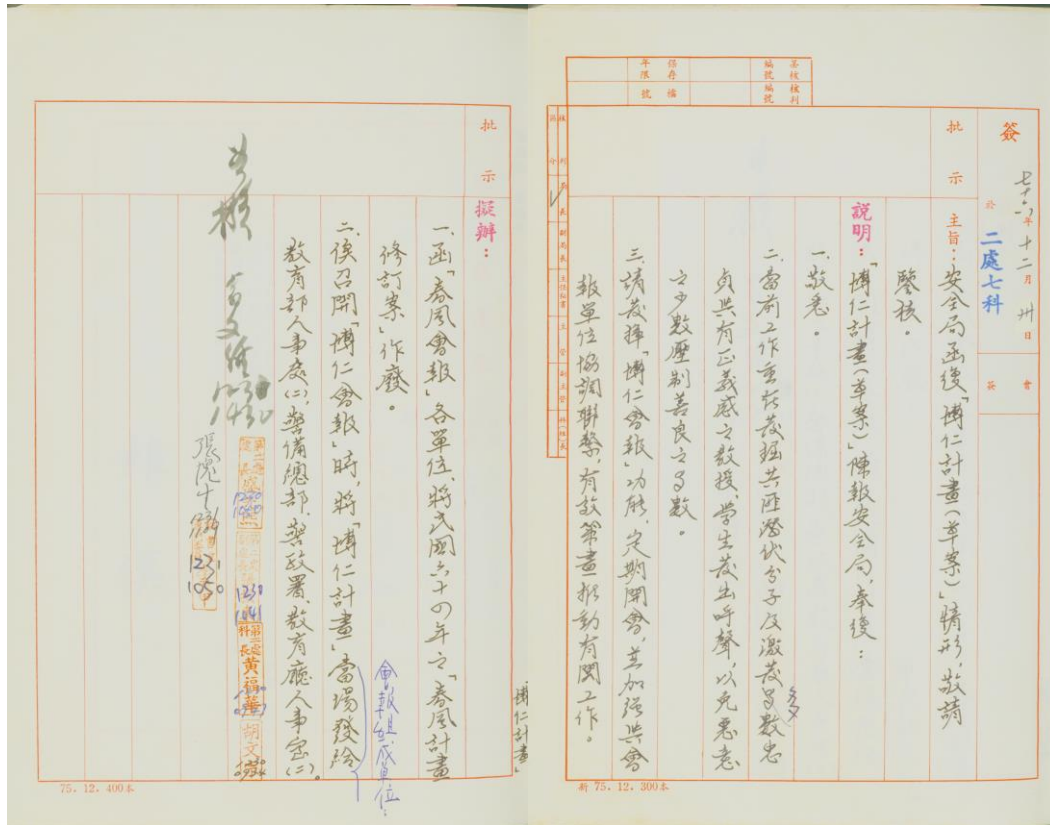 簽
七十六年十二月卅日
於
二處七科
會
簽
批示
主旨：安全局函復「博仁計畫(草案)」情形，敬請
鑒核。
說明：「博仁計畫(草案)」陳報安全局，奉復：
一、敬悉。
二、當前工作重在發掘共匪潛伏分子及激發多數忠
貞具有正義感之教授、學生發出呼聲，以免惡意
之少數壓制善良之多數。
三、請發揮「博仁會報」功能，定期開會，並加強與會
報單位協調聯繫，有效策畫推動有關工作。
年限
保存
號
檔
編號
編號
新 75. 12. 300本
批示
擬辦：
一、函「春風會報」各單位，將民國六十四年之「春風計畫
修訂案」作廢。
二、俟召開「博仁會報」時，將「博仁計畫」當場發給
會報組成單位：
教育部人事處(二)、警備總部、警政署、教育廳人事室(二)。
博仁計畫」
1230
1430
1230
1041
第二處科長黃福華
胡文
1231
1050
75. 12. 400本